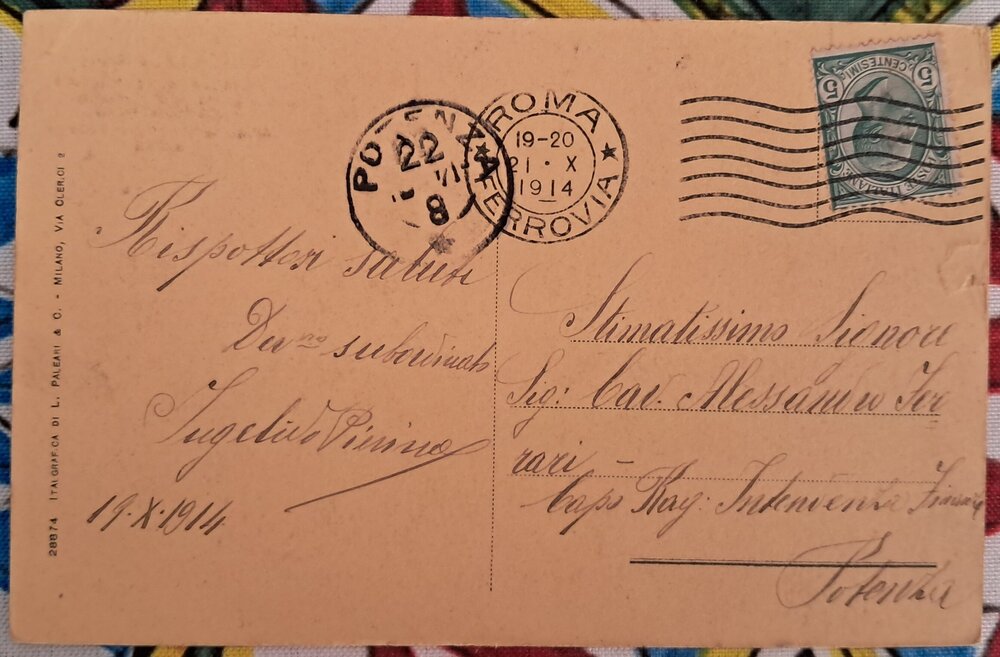 28874 ITALGRAFICA DI L. PALEARI & C. - MILANO, VIA OLERCI 2
POTENZA
22
8
ROMA
19-20
21 · X
1914
FERROVIA
5 CENTESIMI 5
Rispettosi saluti
Dev.mo subordinato
Pierino
19·X·1914
Stimatissimo Signore
Sig: Cav. Alessandro Fer
rari –
Capo Rag: Intendenza
Potenza